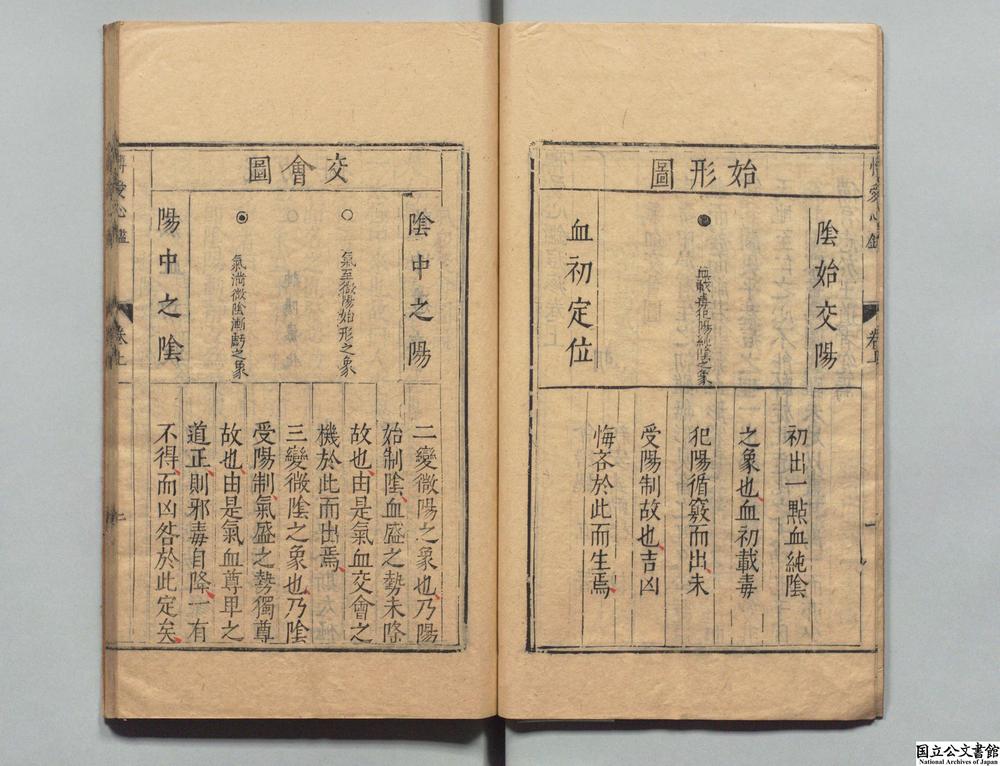 始形圖
陰始交陽
血載毒犯陽純陰之象
血初定位
初出一點血純陰
之象也血初載毒
犯陽循竅而出未
受陽制故也吉凶
悔吝於此而生焉
交會圖
陰中之陽
氣至微陽始形之象
氣満微陰漸虧之象
陽中之陰
二變微陽之象也乃陽
始制陰血盛之勢未降
故也由是氣血交會之
機於此而出焉
三變微陰之象也乃陰
受陽制氣盛之勢獨尊
故也由是氣血尊卑之
道正則邪毒自降一有
不得而凶咎於此定矣
愛心鑑
卷上
国立公文書館
National Archives of Japan